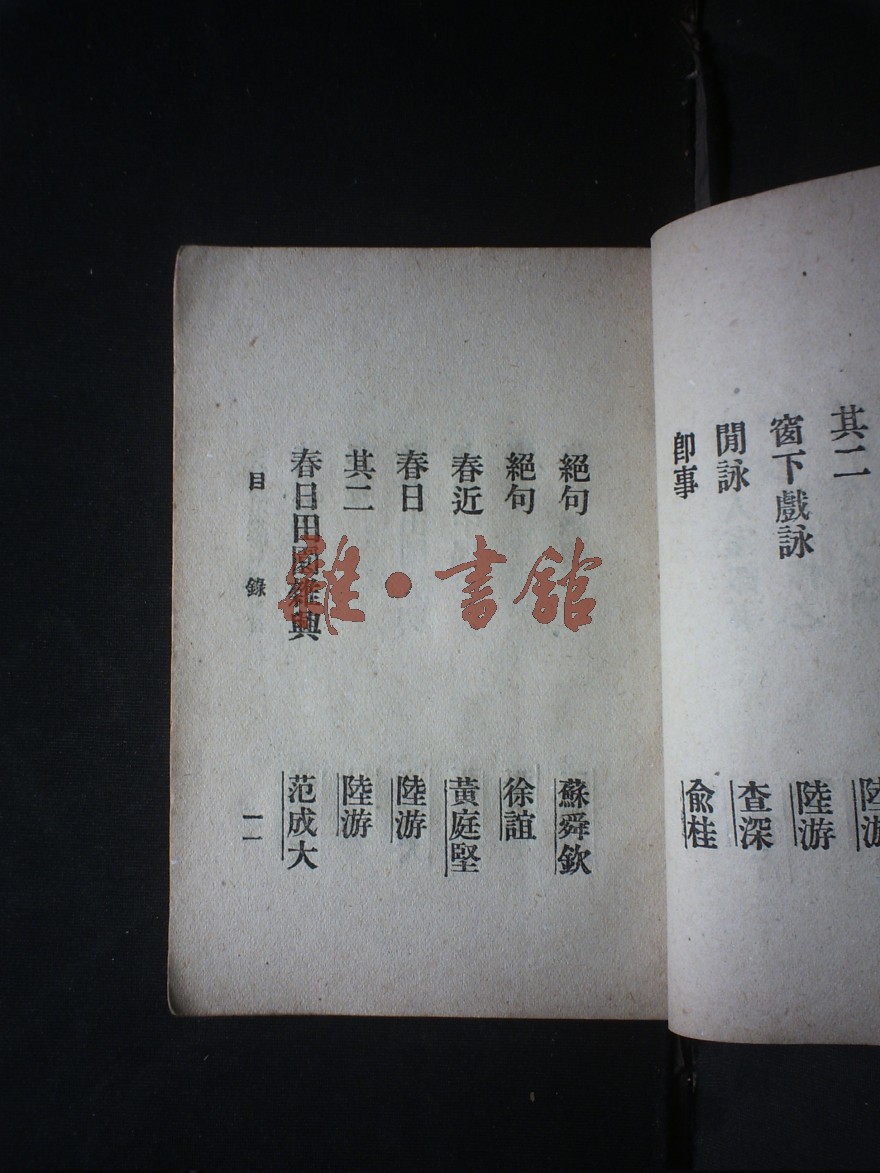 其二 陸游
窗下戲詠 陸游
閒詠 查深
卽事 俞桂
絕句 蘇舜欽
絕句 徐誼
春近 黃庭堅
春日 陸游
其二 陸游
春日田園雜興 范成大
目錄 一一
雜·書館